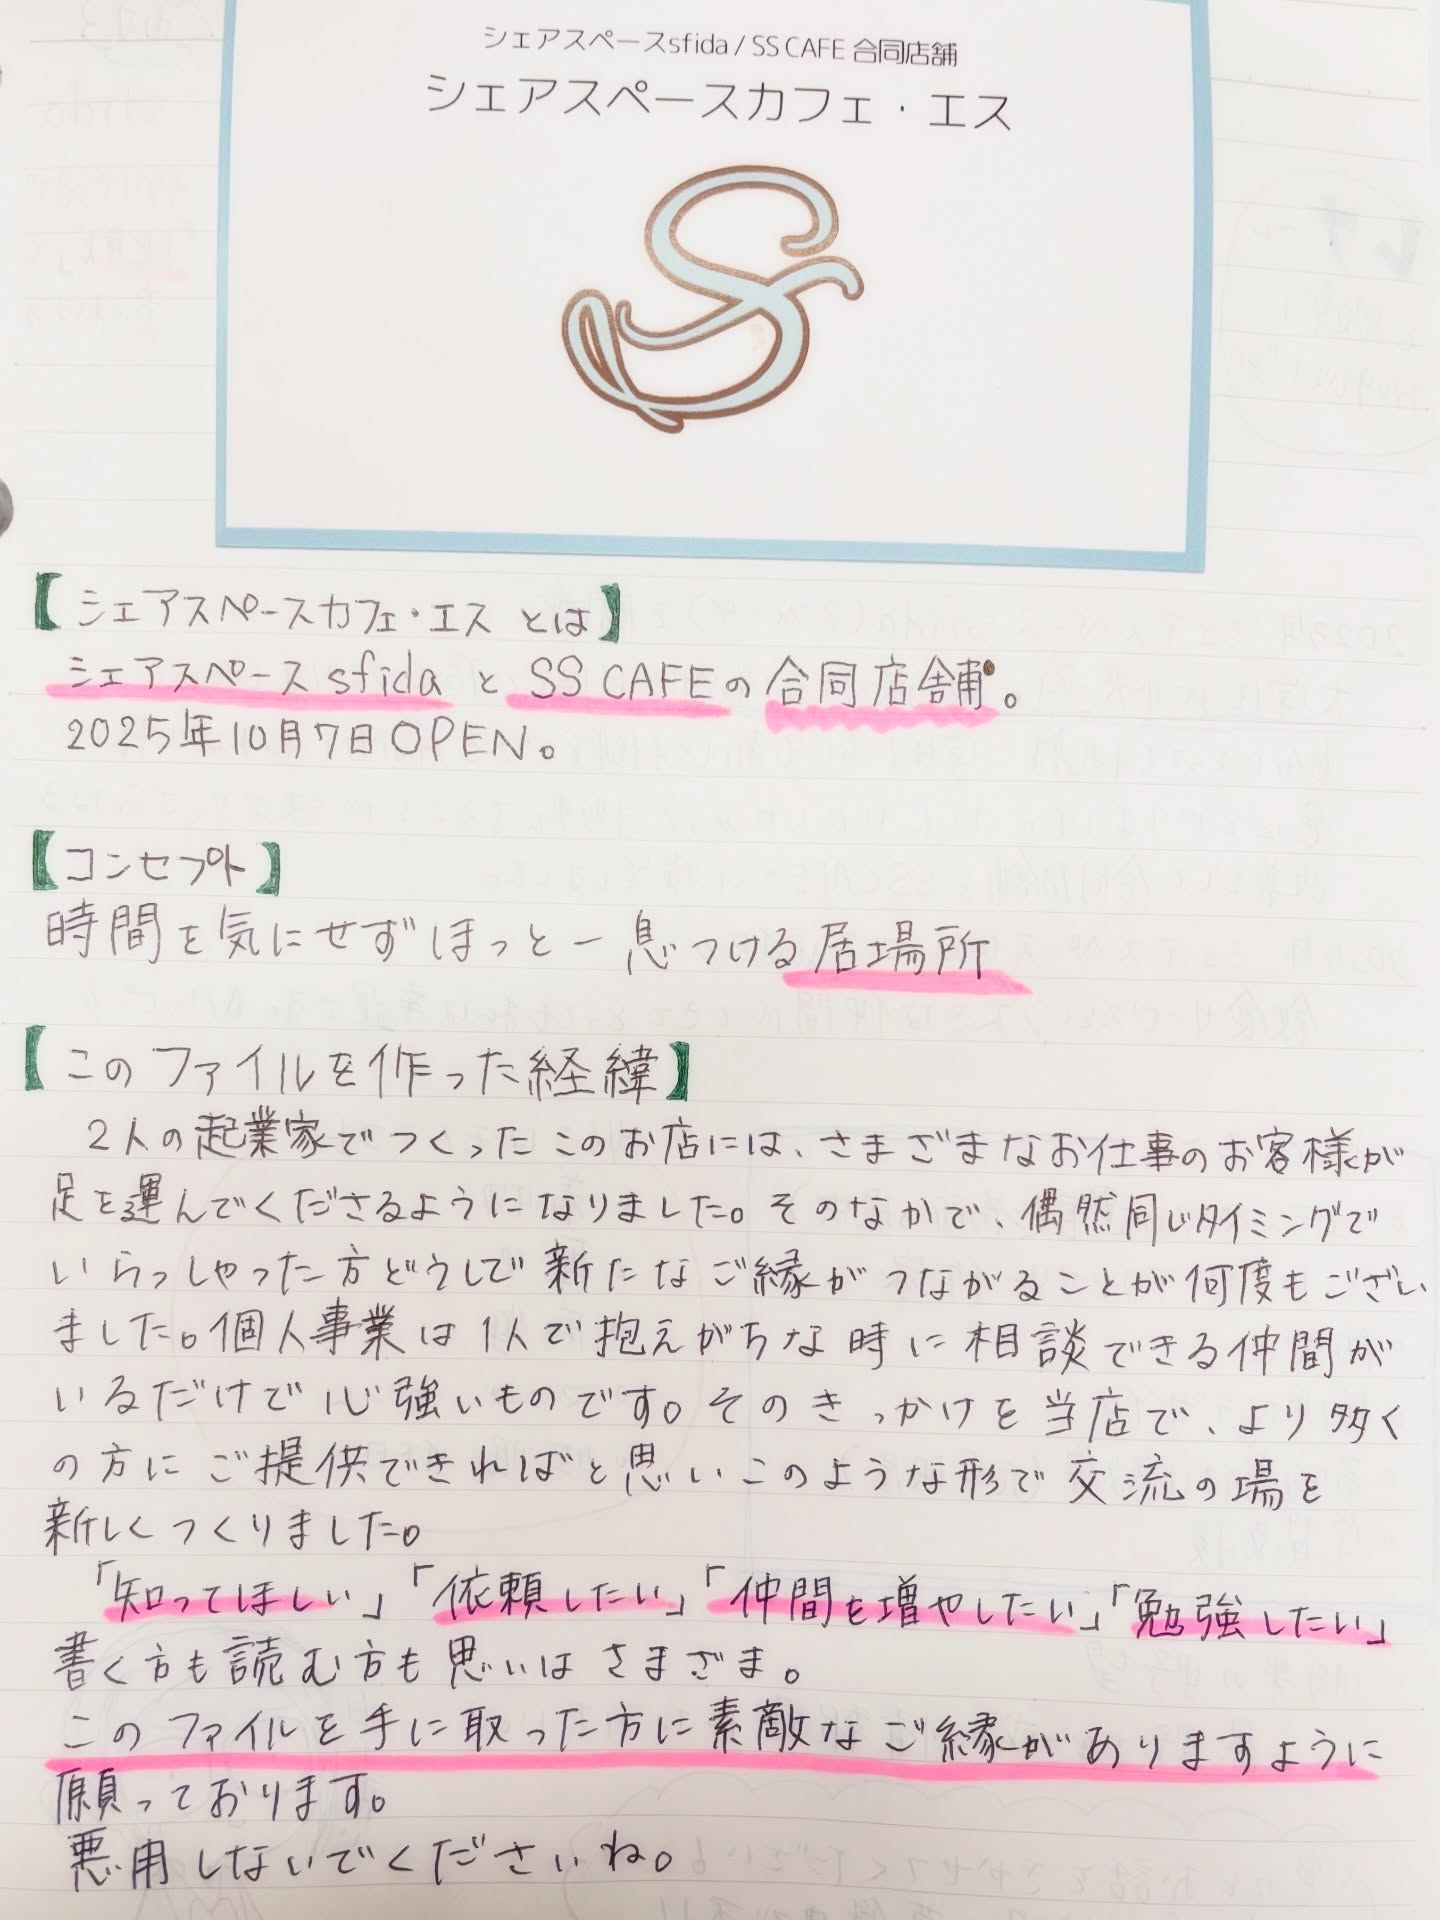 シェアスペースsfida / SS CAFE 合同店舗
シェアスペースカフェ・エス
【シェアスペースカフェ・エス とは】
シェアスペース sfida と SS CAFEの合同店舗。
2025年10月7日OPEN。
【コンセプト】
時間を気にせずほっと一息つける居場所
【このファイルを作った経緯】
2人の起業家でつくったこのお店には、さまざまなお仕事のお客様が
足を運んでくださるようになりました。そのなかで、偶然同じタイミングで
いらっしゃった方どうしで新たなご縁がつながることが何度もござい
ました。個人事業は1人で抱えがちな時に相談できる仲間が
いるだけで心強いものです。そのきっかけを当店で、より多く
の方にご提供できればと思いこのような形で交流の場を
新しくつくりました。
「知ってほしい」「依頼したい」「仲間を増やしたい」「勉強したい」
書く方も読む方も思いはさまざま。
このファイルを手に取った方に素敵なご縁がありますように
願っております。
悪用しないでくださいね。